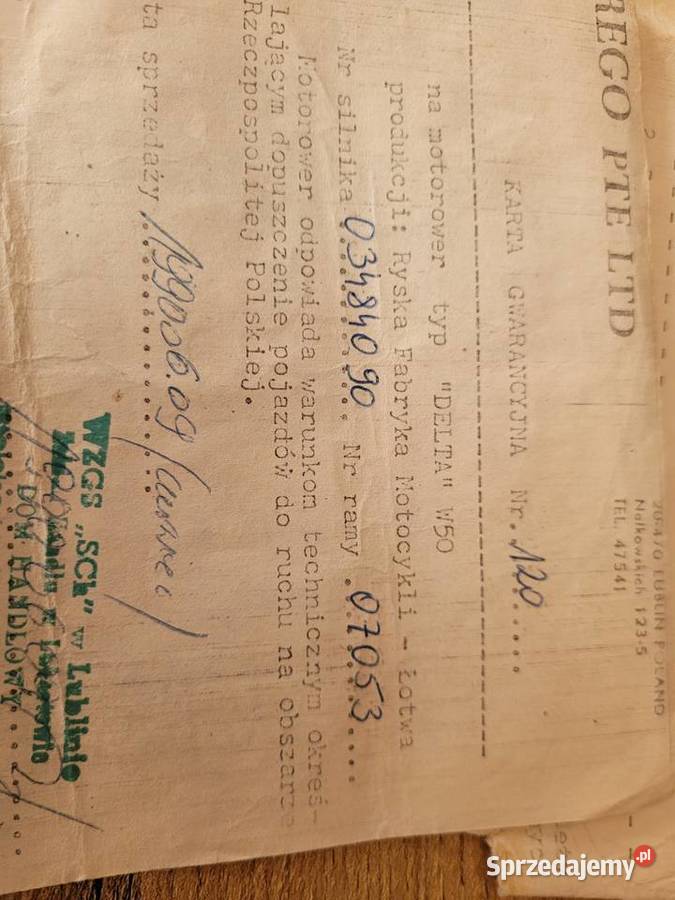 REGO PTE LTD
20-470 LUBLIN POLAND
Nałkowskich 123-5
TEL. 47541
KARTA GWARANCYJNA Nr. 120
na motorower typ "DELTA" W50
produkcji: Ryska Fabryka Motocykli - Łotwa
Nr silnika 03484090 Nr ramy 07053
Motorower odpowiada warunkom technicznym okreś-
lającym dopuszczenie pojazdów do ruchu na obszarze
Rzeczpospolitej Polskiej.
ta sprzedaży 1990.06.09
WZGS „SCh" w Lublinie
DOM HANDLOWY
Sprzedajemy.pl